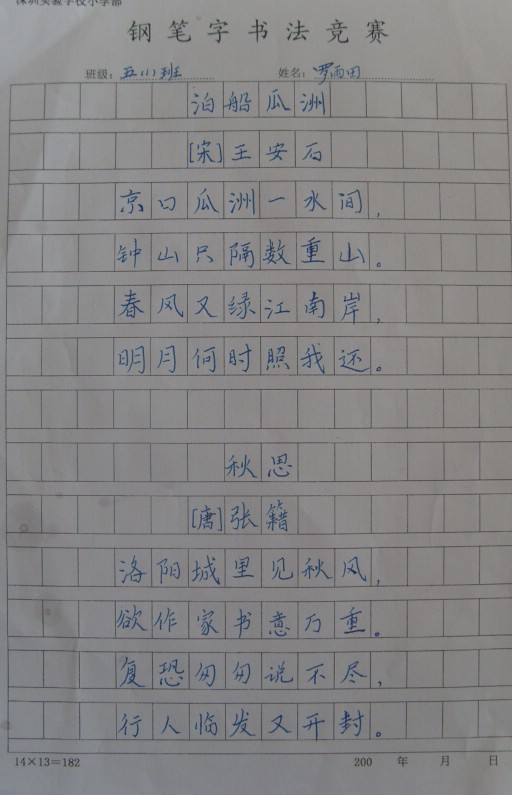 深圳实验学校小学部
钢笔字书法竞赛
班级：五(1)班 姓名：罗雨田
泊船瓜洲
[宋]王安石
京口瓜洲一水间，
钟山只隔数重山。
春风又绿江南岸，
明月何时照我还。
秋思
[唐]张籍
洛阳城里见秋风，
欲作家书意万重。
复恐匆匆说不尽，
行人临发又开封。
14×13=182 200 年 月 日